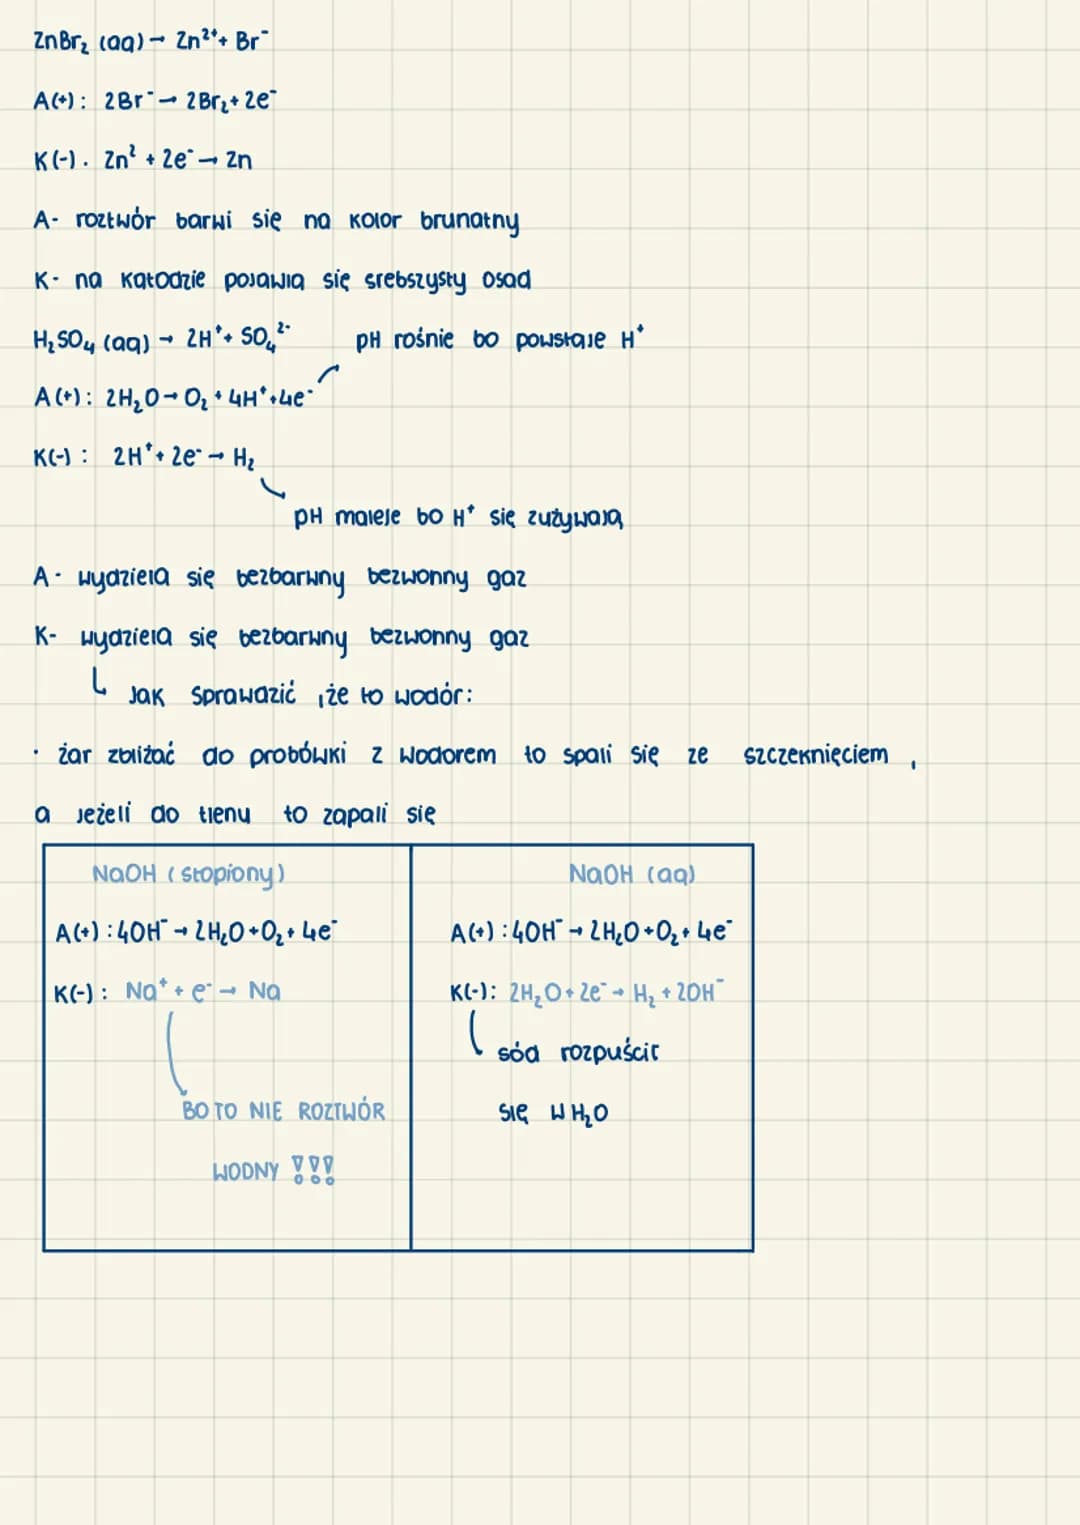 ZnBr₂ (aq) → Zn²⁺ + Br⁻
A(+): 2Br⁻ → 2Br₂ + 2e⁻
K(-). Zn² + 2e⁻ → Zn
A- roztwór barwi się na kolor brunatny
K- na katodzie pojawia się srebszysty osad
H₂SO₄ (aq) → 2H⁺ + SO₄²⁻ pH rośnie bo powstaje H⁺
A(+): 2H₂O → O₂ + 4H⁺ + 4e⁻
K(-): 2H⁺ + 2e⁻ → H₂
pH maleje bo H⁺ się zużywają
A- wydziela się bezbarwny bezwonny gaz
K- wydziela się bezbarwny bezwonny gaz
Jak sprawdzić, że to wodór:
· żar zbliżać do probówki z wodorem to spali się ze szczeknięciem,
a jeżeli do tlenu to zapali się
NaOH (stopiony)
A(+): 4OH⁻ → 2H₂O + O₂ + 4e⁻
K(-): Na⁺ + e⁻ → Na
BO TO NIE ROZTWÓR
WODNY !!!
NaOH (aq)
A(+): 4OH⁻ → 2H₂O + O₂ + 4e⁻
K(-): 2H₂O + 2e⁻ → H₂ + 2OH⁻
sód rozpuścił
się w H₂O